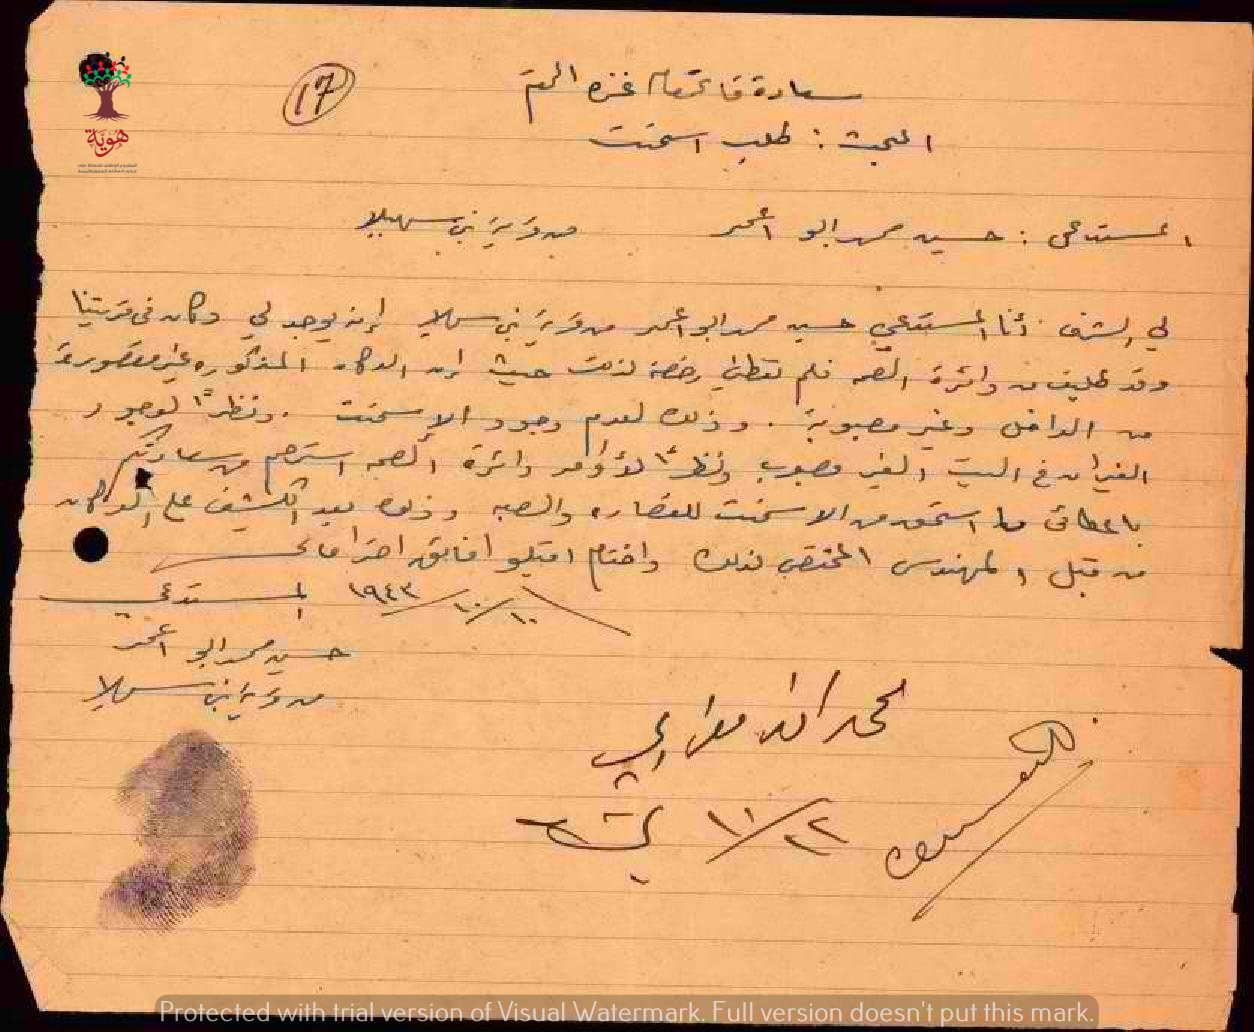 17
سعادة قائمقام غزه المحترم
المبحث : طلب اسمنت
المستدعي : حسين محمد ابو اعمر من قرية بني سهيلا
لي الشرف أنا المستدعي حسين محمد ابو اعمر من قرية بني سهيلا إنه يوجد لي دكان في قريتنا
وقد طلبت من دائرة الصحه فلم تعطني رخصة لذلك حيث إن الدكان المذكوره غير مقصورة
من الداخل وغير مصبوبة . وذلك لعدم وجود الاسمنت . ونظراً لوجود
الفيران في البيت الغير مصبوب ونظراً لأوامر دائرة الصحه استرحم من سعادتكم
باعطائي ما استحق من الاسمنت للقصاره والصبه وذلك بعد الكشف على الدكان
من قبل المهندس المختص لذلك واختام اقبلو افائق احتراماتي
١٠/١٠/١٩٤٣ المستدعي
حسين محمد ابو اعمر
من قرية بني سهيلا
محمد
٢٢/١١
هوية
Protected with trial version of Visual Watermark. Full version doesn't put this mark.